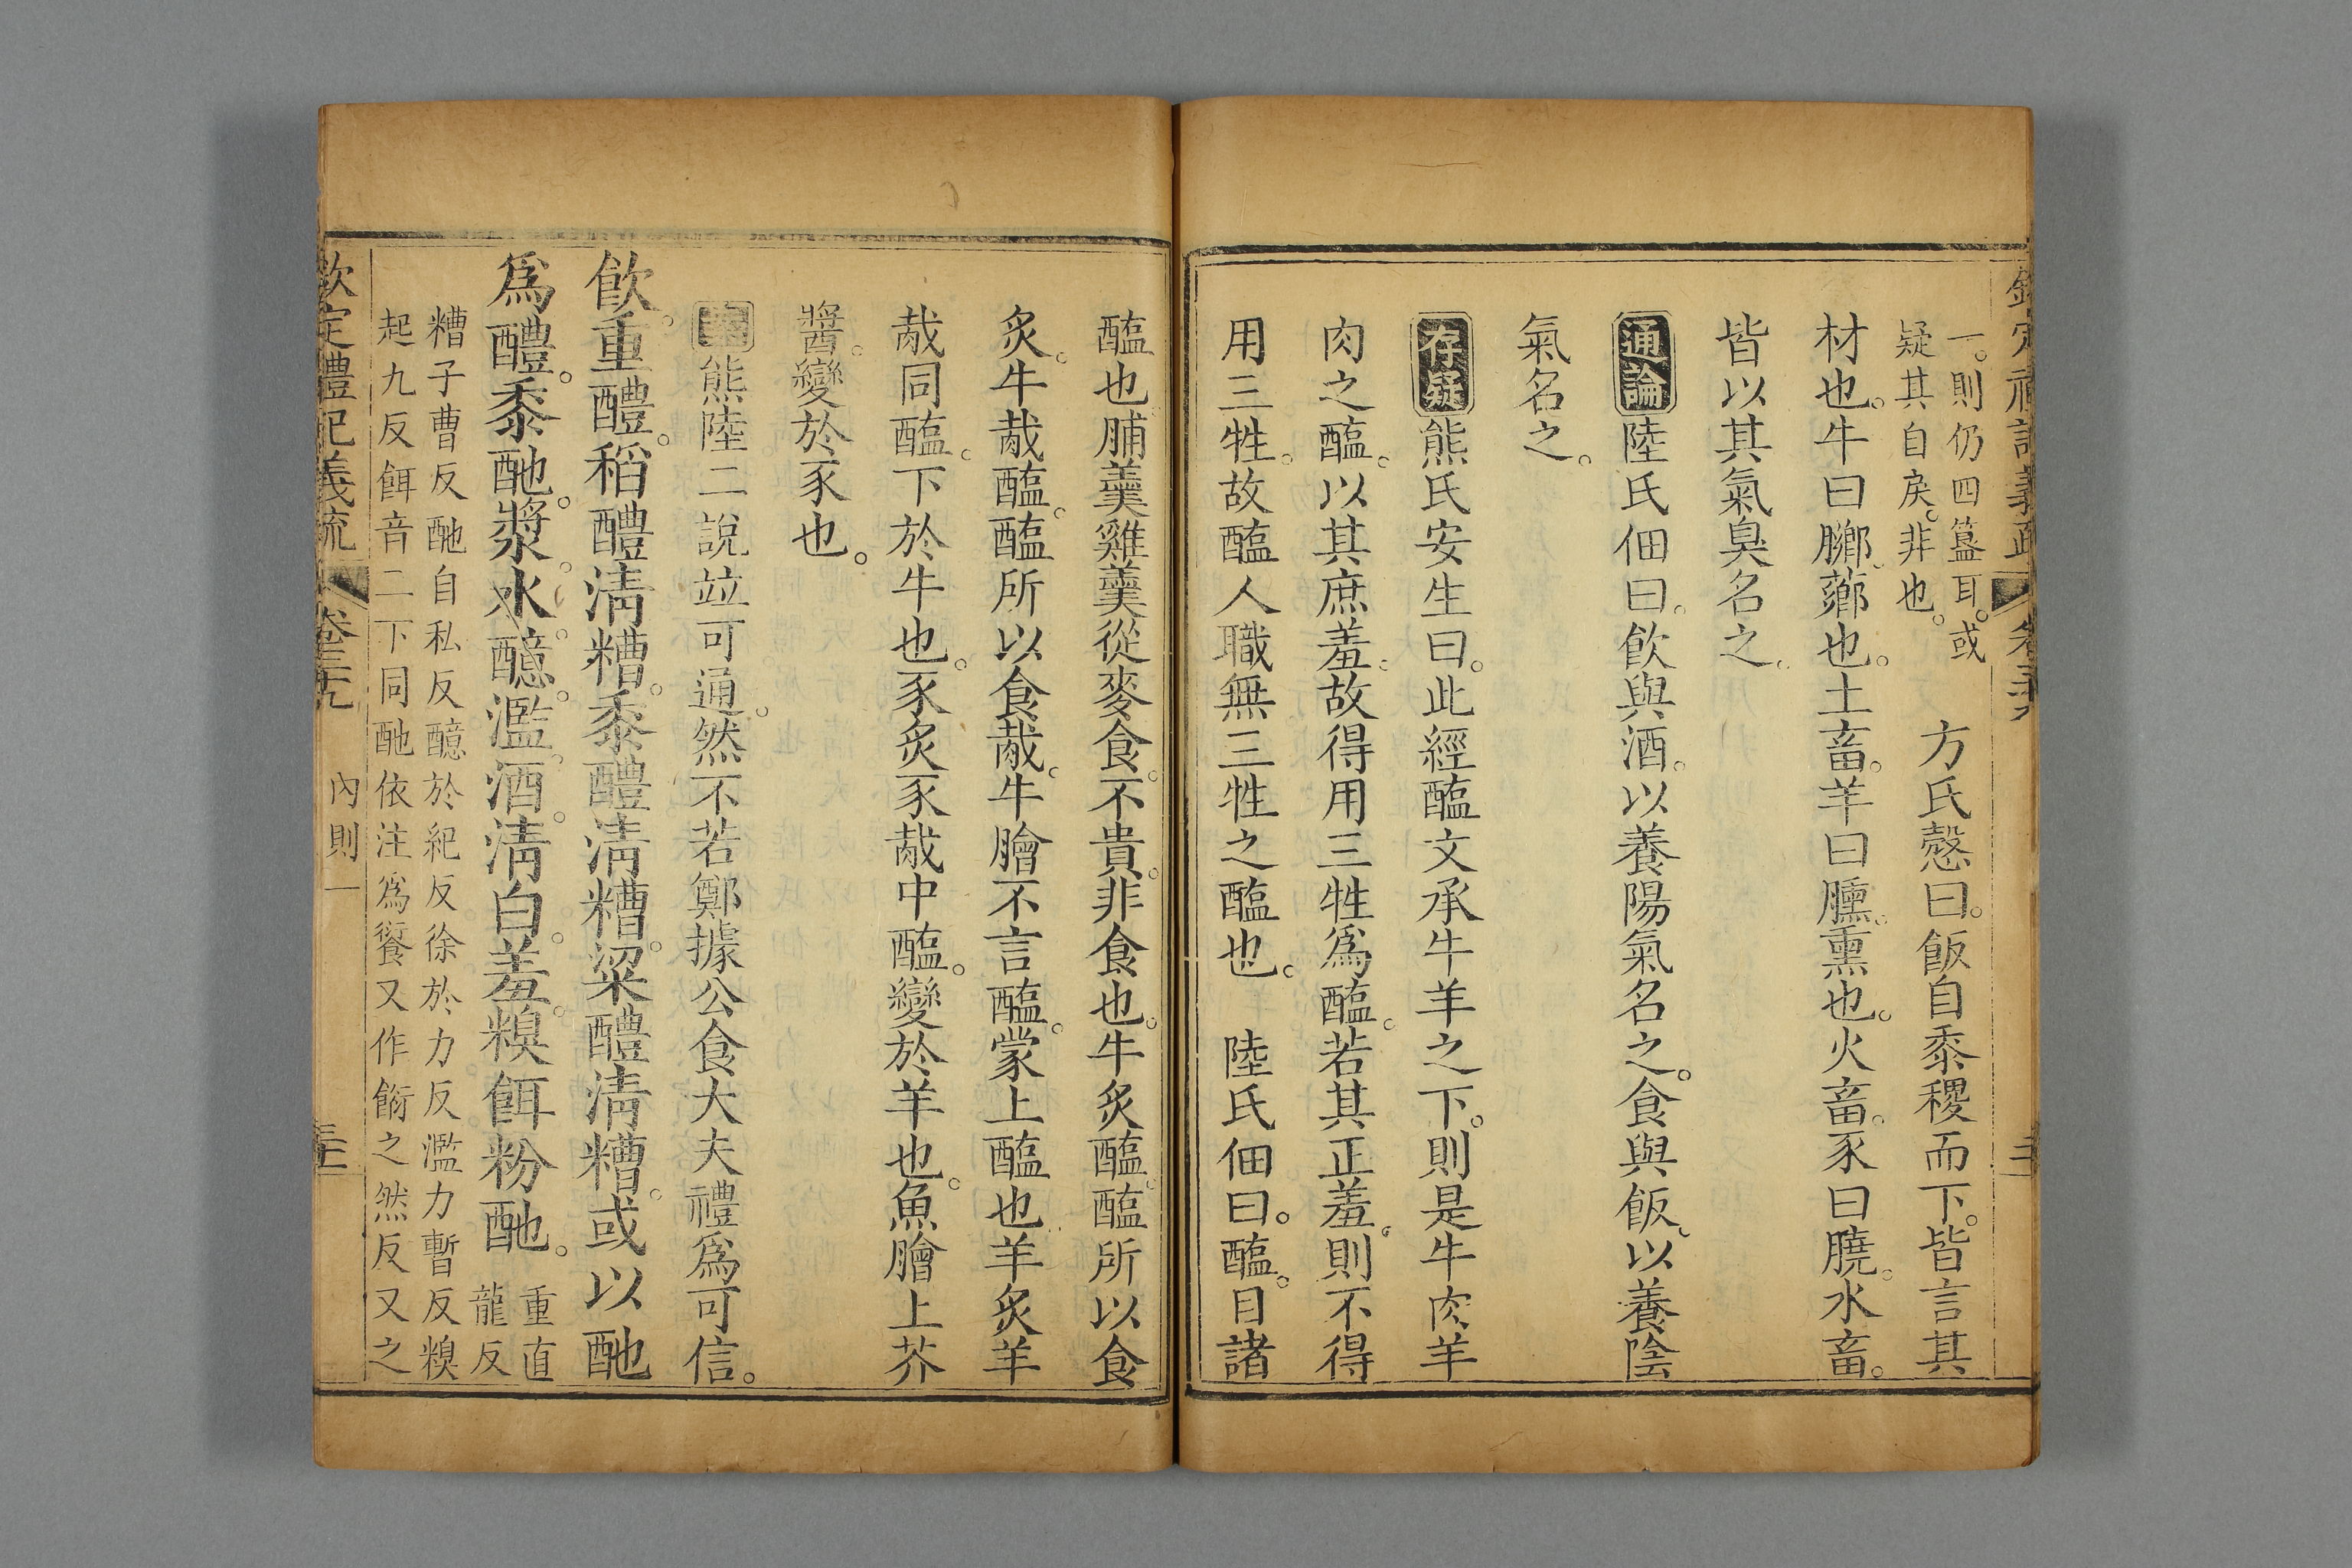 欽定禮記義疏 卷三十九
一。則仍四簋耳。或
疑其自戾。非也。
方氏慤曰。飯自黍稷而下。皆言其
材也。牛曰膷。薌也。土畜。羊曰臐。熏也。火畜。豕曰膮。水畜。
皆以其氣臭名之。
通論陸氏佃曰。飲與酒。以養陽氣名之。食與飯。以養陰
氣名之。
存疑熊氏安生曰。此經醢文承牛羊之下。則是牛肉羊
肉之醢。以其庶羞。故得用三牲爲醢。若其正羞。則不得
用三牲。故醢人職無三牲之醢也。 陸氏佃曰。醢。目諸
醢也脯羹雞羹從麥食。不貴。非食也。牛炙醢。醢所以食
炙。牛胾醢。醢所以食胾。牛膾不言醢。蒙上醢也。羊炙羊
胾同醢。下於牛也。豕炙豕胾中醢。變於羊也。魚膾上芥
醬。變於豕也。
案熊陸二說竝可通。然不若鄭據公食大夫禮爲可信。
飲。重醴。稻醴清糟。黍醴清糟。粱醴清糟。或以酏
爲醴。黍酏。漿。水。醷。濫。酒。清白。羞。糗餌粉酏。
重直
龍反
糟子曹反酏自私反醷於紀反徐於力反濫力暫反糗
起九反餌音二下同酏依注爲餰又作飾之然反又之
欽定禮記義疏 卷三十九 內則一